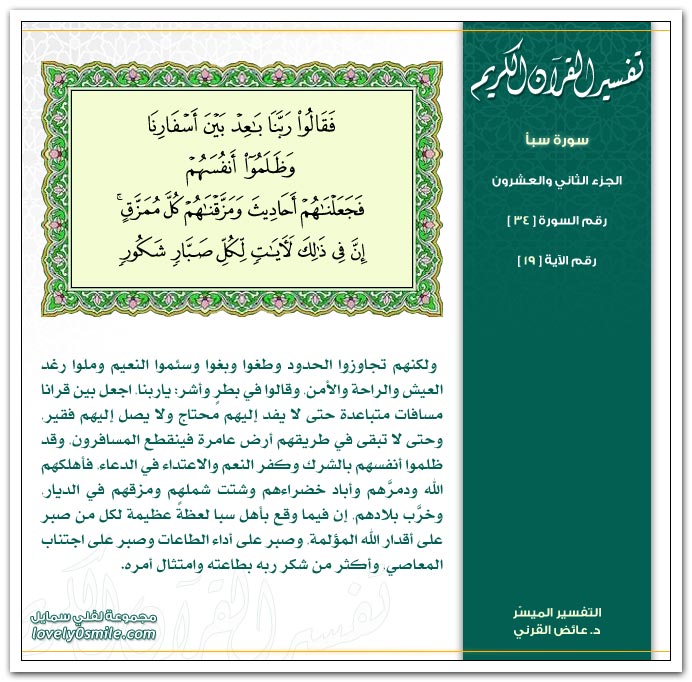 تفسير القرآن الكريم
سورة سبأ
الجزء الثاني والعشرون
رقم السورة [ ٣٤ ]
رقم الآية [ ١٩ ]
فَقَالُوا۟ رَبَّنَا بَـٰعِدْ بَيْنَ أَسْفَارِنَا
وَظَلَمُوٓا۟ أَنفُسَهُمْ
فَجَعَلْنَـٰهُمْ أَحَادِيثَ وَمَزَّقْنَـٰهُمْ كُلَّ مُمَزَّقٍ ۚ
إِنَّ فِى ذَٰلِكَ لَـَٔايَـٰتٍ لِّكُلِّ صَبَّارٍ شَكُورٍ
ولكنهم تجاوزوا الحدود وطغوا وبغوا وسئموا النعيم وملوا رغد
العيش والراحة والأمن، وقالوا في بطرٍ وأشر: ياربنا، اجعل بين قرانا
مسافات متباعدة حتى لا يفد إليهم محتاج ولا يصل إليهم فقير،
وحتى لا تبقى في طريقهم أرض عامرة فينقطع المسافرون، وقد
ظلموا أنفسهم بالشرك وكفر النعم والاعتداء في الدعاء، فأهلكهم
الله ودمرَّهم وأباد خضراءهم وشتت شملهم ومزقهم في الديار،
وخرَّب بلادهم، إن فيما وقع بأهل سبا لعظةً عظيمة لكل من صبر
على أقدار الله المؤلمة، وصبر على أداء الطاعات وصبر على اجتناب
المعاصي، وأكثر من شكر ربه بطاعته وامتثال أمره.
التفسير الميسّر
د. عائض القرني
مجموعة لفلي سمايل
lovely0smile.com
تفسير القرآن الكريم